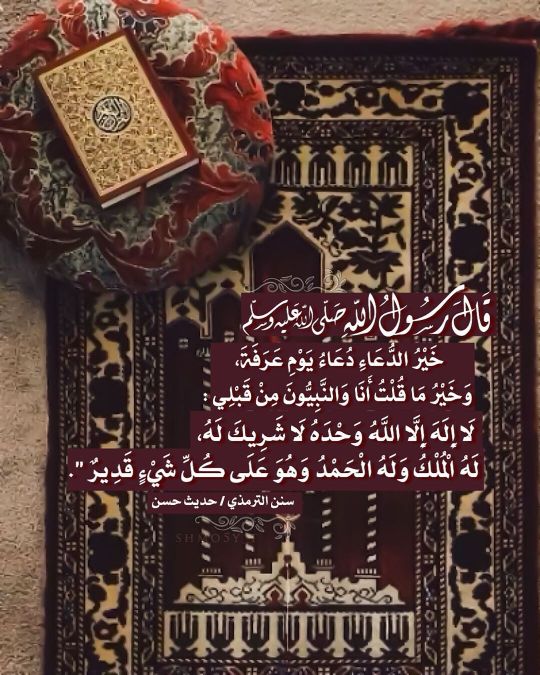 قَالَ رَسُولُ اللَّهِ صَلَّى اللَّهُ عَلَيْهِ وَسَلَّم
خَيْرُ الدُّعَاءِ دُعَاءُ يَوْمِ عَرَفَةَ،
وَخَيْرُ مَا قُلْتُ أَنَا وَالنَّبِيُّونَ مِنْ قَبْلِي :
لَا إِلَهَ إِلَّا اللَّهُ وَحْدَهُ لَا شَرِيكَ لَهُ،
لَهُ الْمُلْكُ وَلَهُ الْحَمْدُ وَهُوَ عَلَى كُلِّ شَيْءٍ قَدِيرٌ ".
سنن الترمذي / حديث حسن